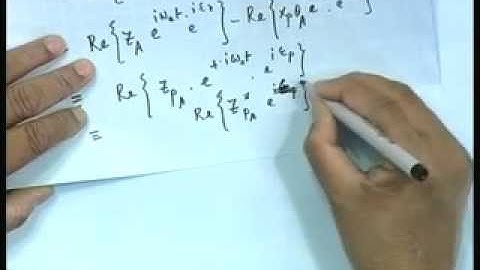 Re{ z_A e^{iω_e t} . e^{iε_z} } - Re{ x_p θ_A e . e }
= Re{ z_{p_A} . e^{+iω_e t} . e^{iε_p} }
= Re{ z*_{p_A} e }